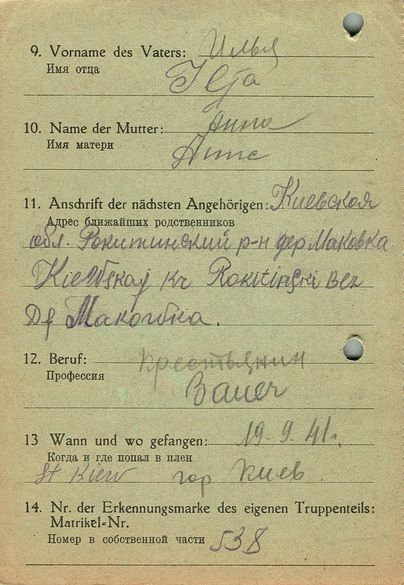 9. Vorname des Vaters: Илья
Имя отца
Ilja
10. Name der Mutter: Анна
Имя матери
Anna
11. Anschrift der nächsten Angehörigen: Киевская
Адрес ближайших родственников
обл. Рокитинский р-н дер Маковка
Kiewskaj Kr Rokitinski Bez
Df Makowka.
12. Beruf: крестьянин
Профессия
Bauer
13 Wann und wo gefangen: 19. 9. 41 г.
Когда и где попал в плен
St Kiew гор Киев.
14. Nr. der Erkennungsmarke des eigenen Truppenteils:
Matrikel-Nr.
Номер в собственной части 538